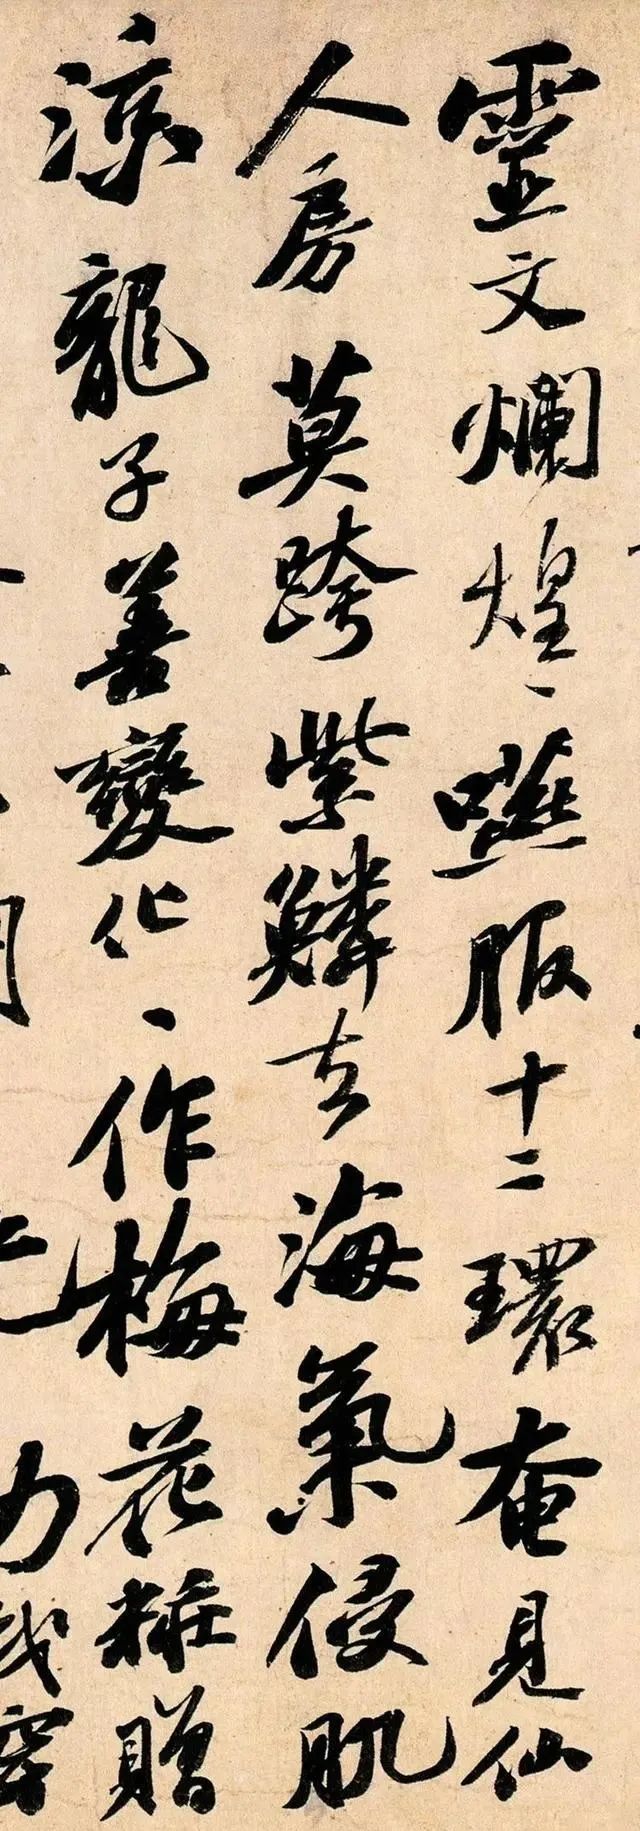 靈文爛煌〻嚥服十二環奄見仙
人房莫跨紫鱗去海氣侵肌
涼龍子善變化〻作梅花粧贈